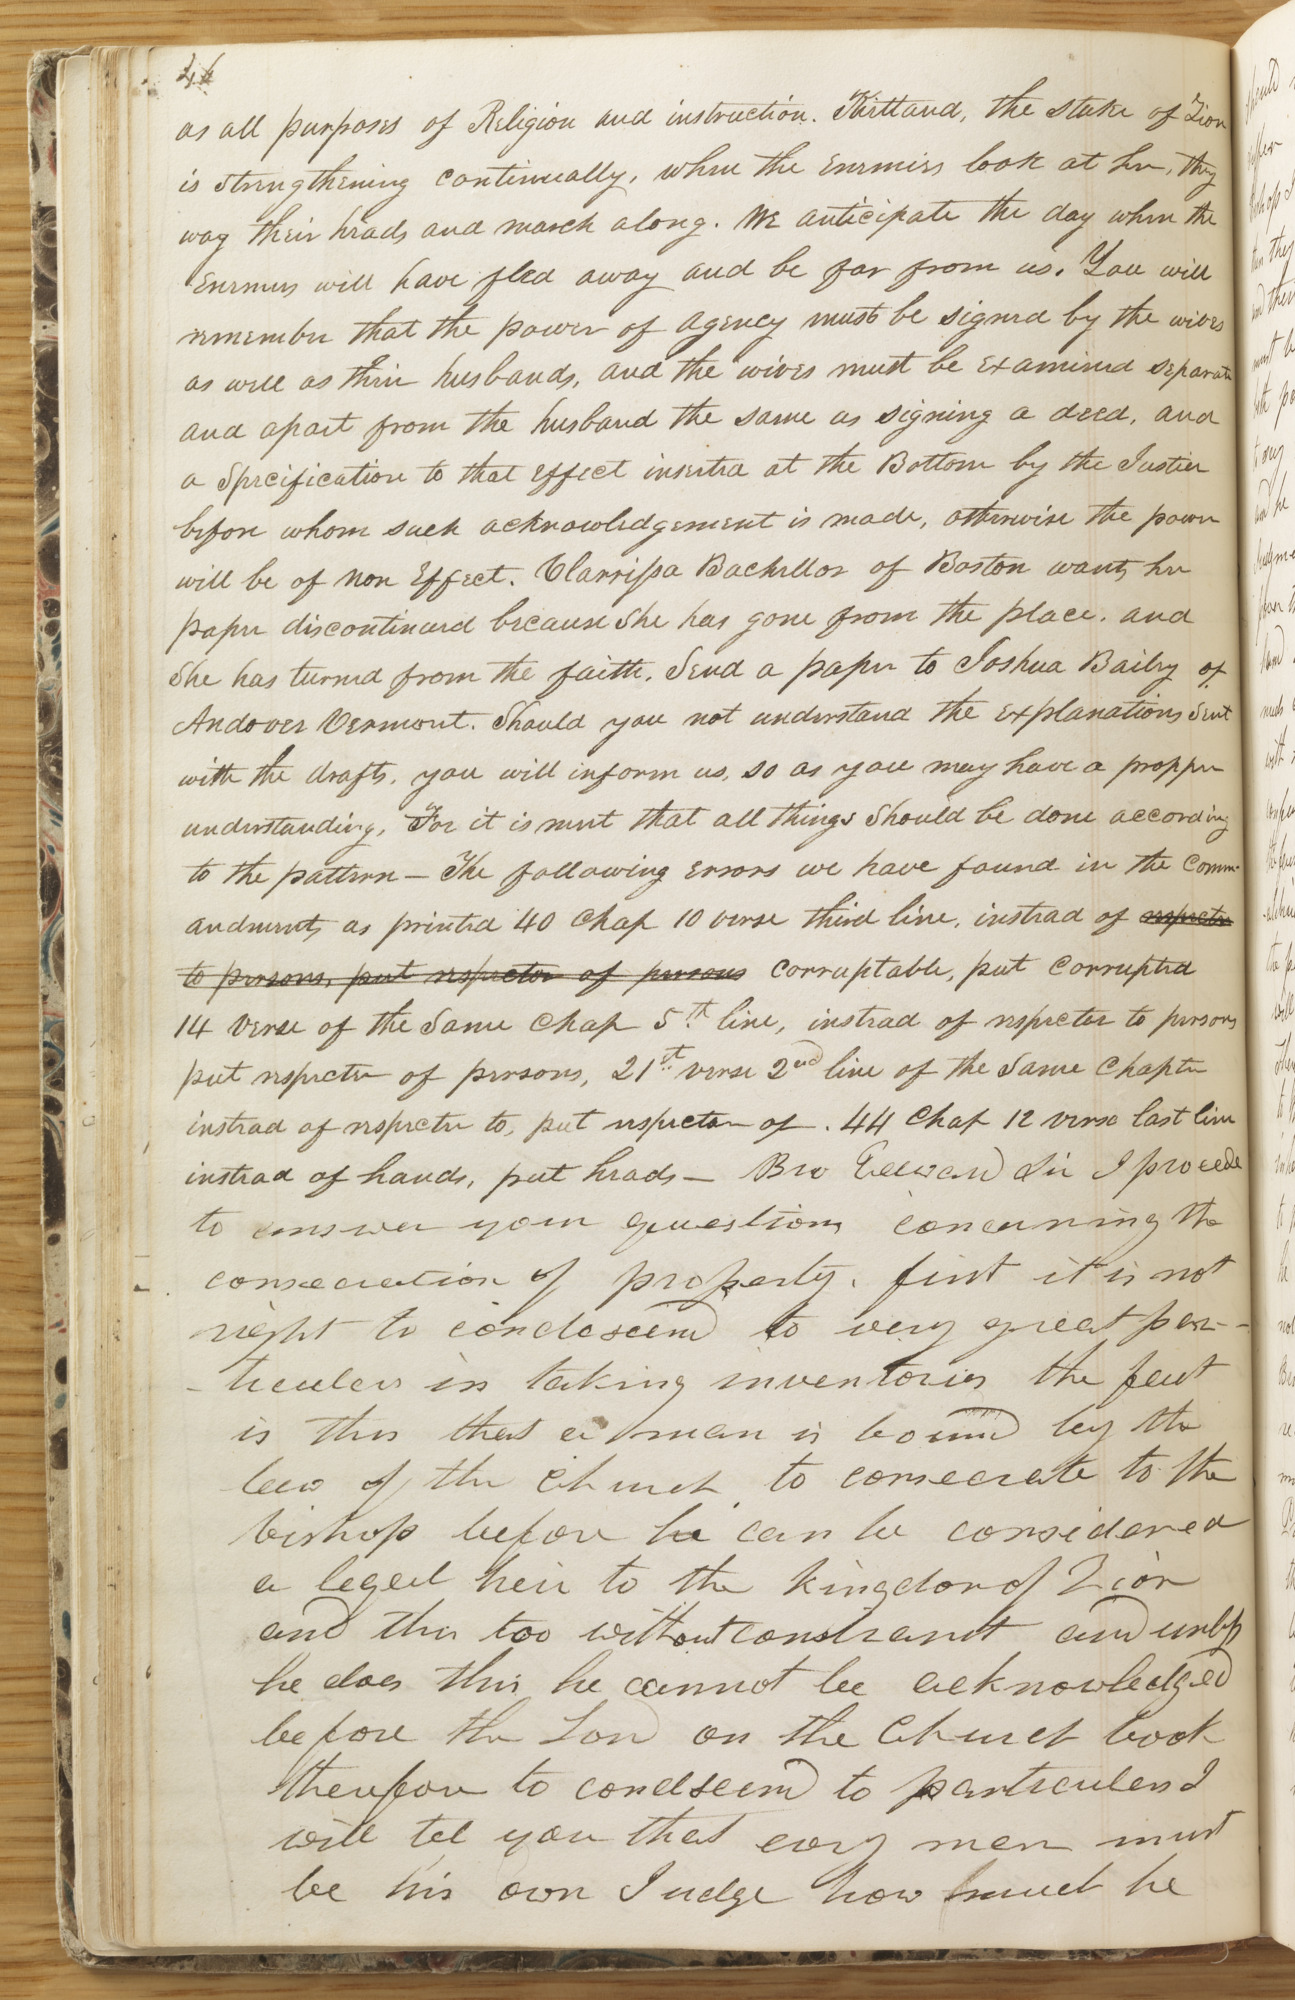 46
as all purposes of Religion and instruction. Kirtland, the stake of Zion
is strengthening continually, when the Enemies look at her, they
wag their heads and march along. We anticipate the day when the
Enemies will have fled away and be far from us. You will
remember that the power of agency must be signed by the wives
as well as their husbands, and the wives must be Examined separate
and apart from the husband the same as signing a deed, and
a Specification to that Effect inserted at the Bottom by the Justice
before whom such acknowledgement is made, otherwise the power
will be of non Effect. Clarrissa Bachellor of Boston wants her
paper discontinued because She has gone from the place. and
She has turned from the faith. Send a paper to Joshua Bailey of
Andover Vermont. Should you not understand the Explanations Sent
with the drafts, you will inform us, so as you may have a propper
understanding, For it is meet that all things Should be done according
to the pattern — The following Errors we have found in the Comm-
andments as printed 40 Chap 10 verse third line, instead of respecter
to persons, put respector of persons corruptable, put corrupted
14 verse of the Same Chap 5th line, instead of respecter to persons
put respecter of persons, 21st verse 2nd line of the Same Chapter
instead of respecter to, put respector of. 44 Chap 12 verse last line
instead of hands, put heads — Bro Edward Sir I proceede
to answer your questions concerning the
consecration of property. first it is not
right to condescend to very great par-
-ticulers in taking inventories the fact
is this that a man is bound by the
law of the Church to consecrate to the
bishop before he can be considered
a legal heir to the kingdom of Zion
and this too without constraint and unless
he does this he cannot be acknowledged
before the Lord on the Church book
therefore to condescend to particulers I
will tel you that every man must
be his own Judge how much he